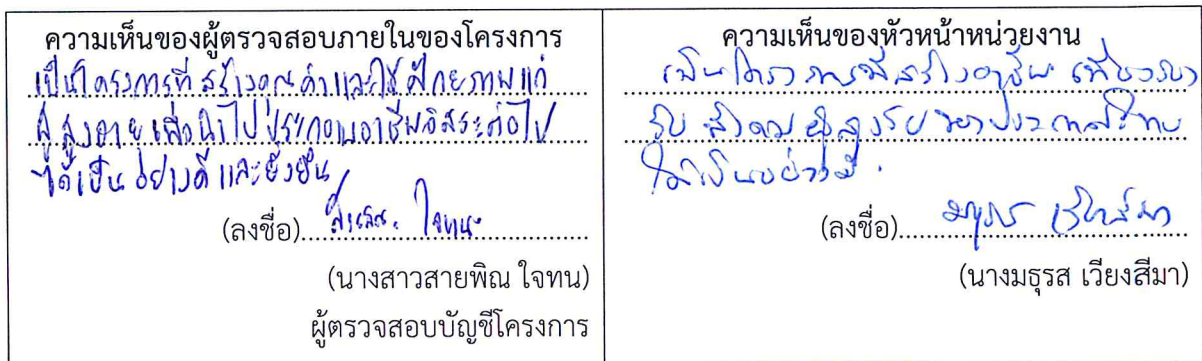 ความเห็นของผู้ตรวจสอบภายในของโครงการ
เป็นโครงการที่สร้างคุณค่าและใช้ศักยภาพแก่
ผู้สูงอายุ เพื่อนำไปประกอบอาชีพอิสระต่อไป
ได้เป็นอย่างดีและยั่งยืน
(ลงชื่อ) ใจทน
(นางสาวสายพิณ ใจทน)
ผู้ตรวจสอบบัญชีโครงการ
ความเห็นของหัวหน้าหน่วยงาน
เป็นโครงการที่สร้างอาชีพ เพื่อรองรับ
สังคมผู้สูงวัย
ได้เป็นอย่างดี
(ลงชื่อ)
(นางมธุรส เวียงสีมา)